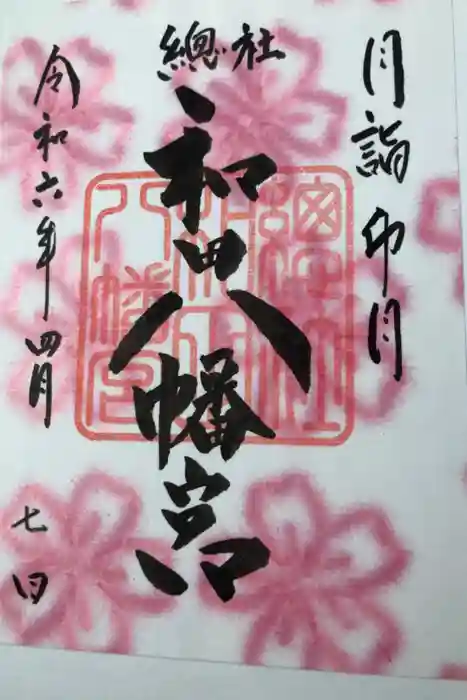 月詣 卯月
總社
和田八幡宮
令和六年四月
七日
總社
和田
八幡宮